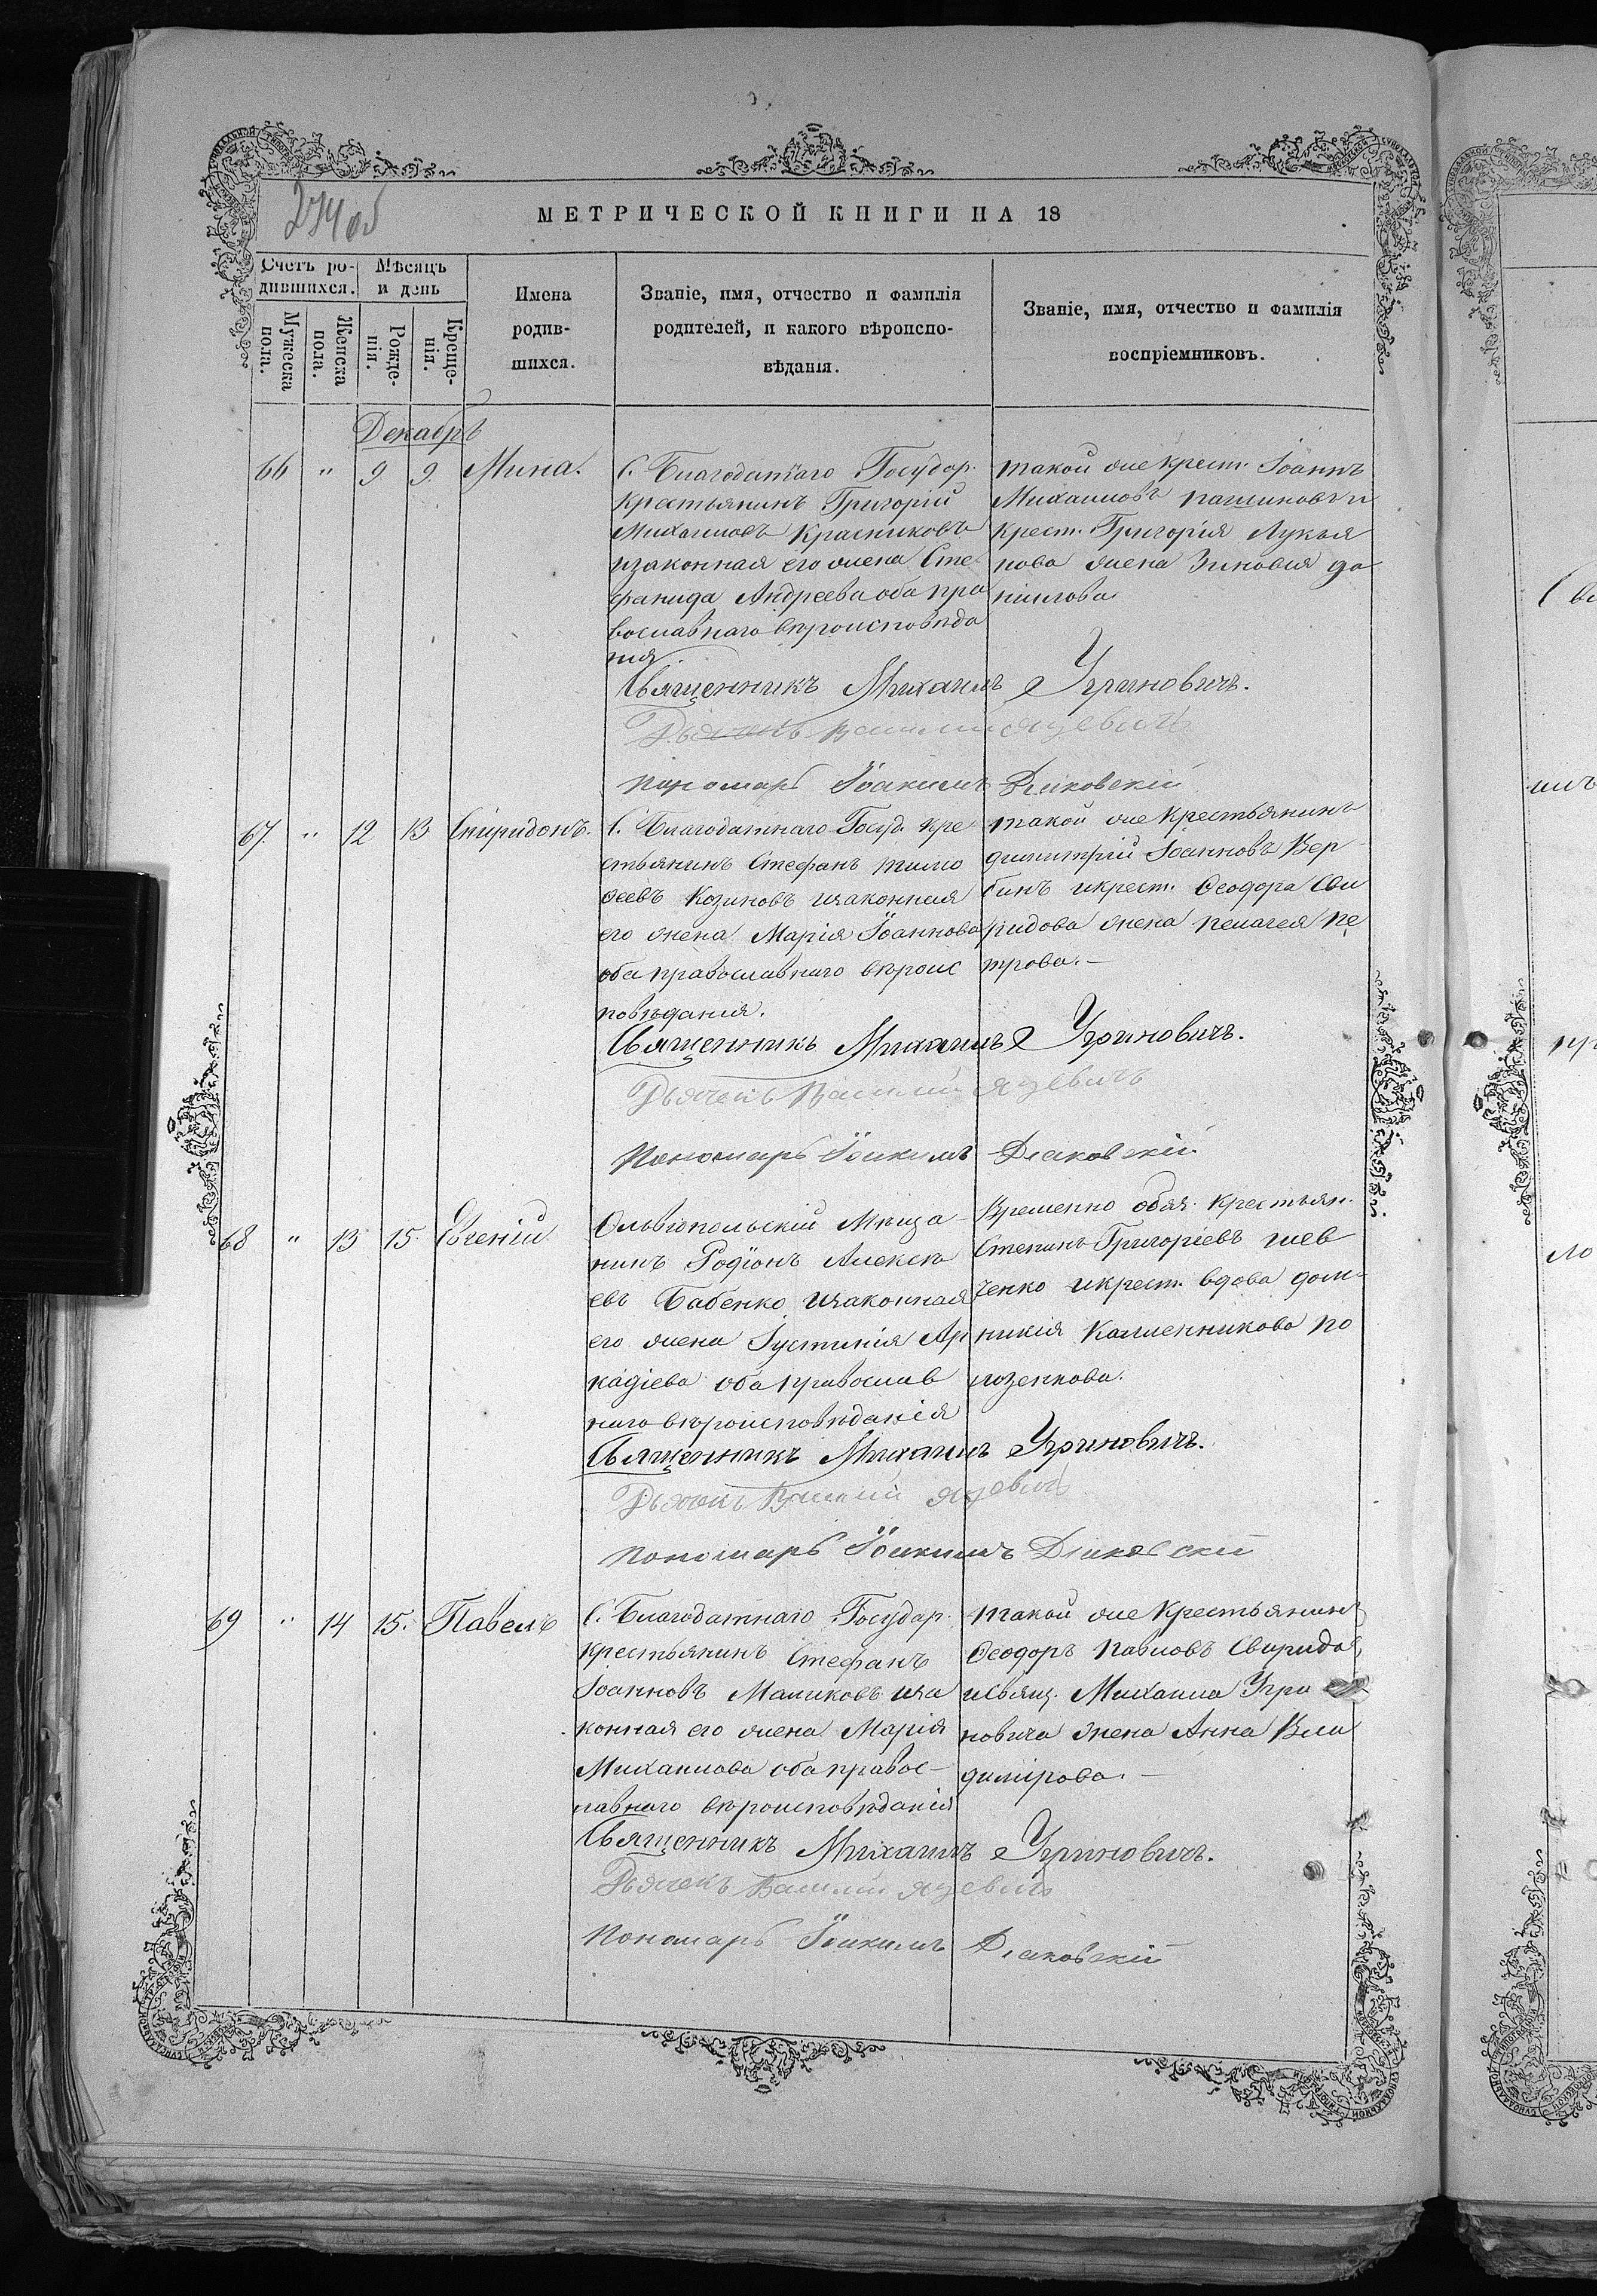 274 об
МЕТРИЧЕСКОЙ КНИГИ НА 18
Счетъ ро-
дившихся.
Мѣсяцъ
и день
Мужеска
пола.
Женска
пола.
Рожде-
нія.
Креще-
нія.
Имена
родив-
шихся.
Званіе, имя, отчество и фамилія
родителей, и какого вѣроиспо-
вѣданія.
Званіе, имя, отчество и фамилія
воспріемниковъ.
Декабрь
66 " 9 9. Мина.
С. Благодатнаго Государ.
крестьянинъ Григорій
Михаиловъ Красниковъ
изаконная его жена Сте
фанида Андреева оба пра
вославнаго вѣроисповѣда
нія.
такой же крест. Іоаннъ
Михаиловъ и
крест. Григорія Лукья
нова жена Зиновія Да
ніилова
Священникъ Михаилъ Угриновичъ.
Дьячекъ Василий Яцевичъ
Пономарь Іоакимъ Дьяковскій
67. " 12 13 Спиридонъ.
С. Благодатнаго Госуд. кре
стьянинъ Стефанъ Тимо
ѳеевъ Козиновъ изаконная
его жена Марія Іоаннова
оба православнаго вѣроис
повѣданія.
такой же крестьянинъ
Димитрій Іоанновъ Вер
бинъ икрест. Ѳеодора Сви
ридова жена Пелагея Пе
трова. —
Священникъ Михаилъ Угриновичъ.
Дьячекъ Василий Яцевичъ
Пономарь Іоакимъ Дьяковскій
68 " 13 15 Евгений
Ольвіопольскій Мѣща-
нинъ Родіонъ Алексѣ
евъ Бабенко изаконная
его жена Іустинія Ар
кадіева оба православ
наго вѣроисповѣданія
Временно обяз. крестьян.
Степанъ Григорьевъ Шев
ченко икрест. вдова Дом-
никія Калиенникова По
лозенкова.
Священникъ Михаилъ Угриновичъ.
Дьячекъ Василий Яцевичъ
Пономарь Іоакимъ Дьяковскій
69 " 14 15. Павелъ
С. Благодатнаго Государ.
крестьянинъ Стефанъ
Іоанновъ Маликовъ иза
конная его жена Марія
Михаилова оба правос-
лавнаго вѣроисповѣданія
такой же крестьянинъ
Ѳеодоръ Павловъ Свиридов
исвящ. Михаила Угри
новича жена Анна Вла
димірова. —
Священникъ Михаилъ Угриновичъ.
Дьячекъ Василий Яцевичъ
Пономарь Іоакимъ Дьяковскій